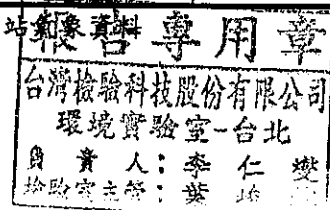 站氣象資料
報告專用章
台灣檢驗科技股份有限公司
環境實驗室-台北
負責人：李仁燮
檢驗室主管：葉